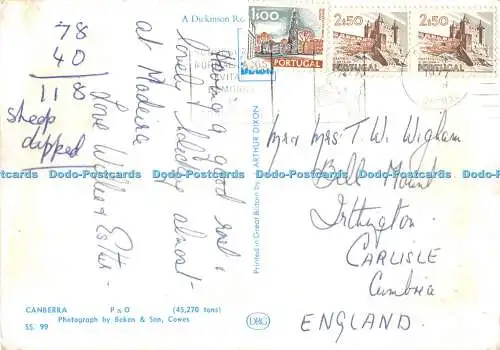 A Dickinson Ro
78
40
118
sheep
dipped
Having a good rest &
lovely holiday almost
at Madeira
Love Willie & Esther
CANBERRA P & O (45,270 tons)
Photograph by Beken & Son, Cowes
SS. 99
Printed in Great Britain by ARTHUR DIXON
DRG
1$00
PORTUGAL
2$50
PORTUGAL
2$50
PORTUGAL
Mr & Mrs T. W. Wigham
Bell Mount
Irthington
CARLISLE
Cumbria
ENGLAND.
Dodo-Postcards Dodo-Postcards Dodo-Postcards Dodo-Postcards Dodo-Postcards